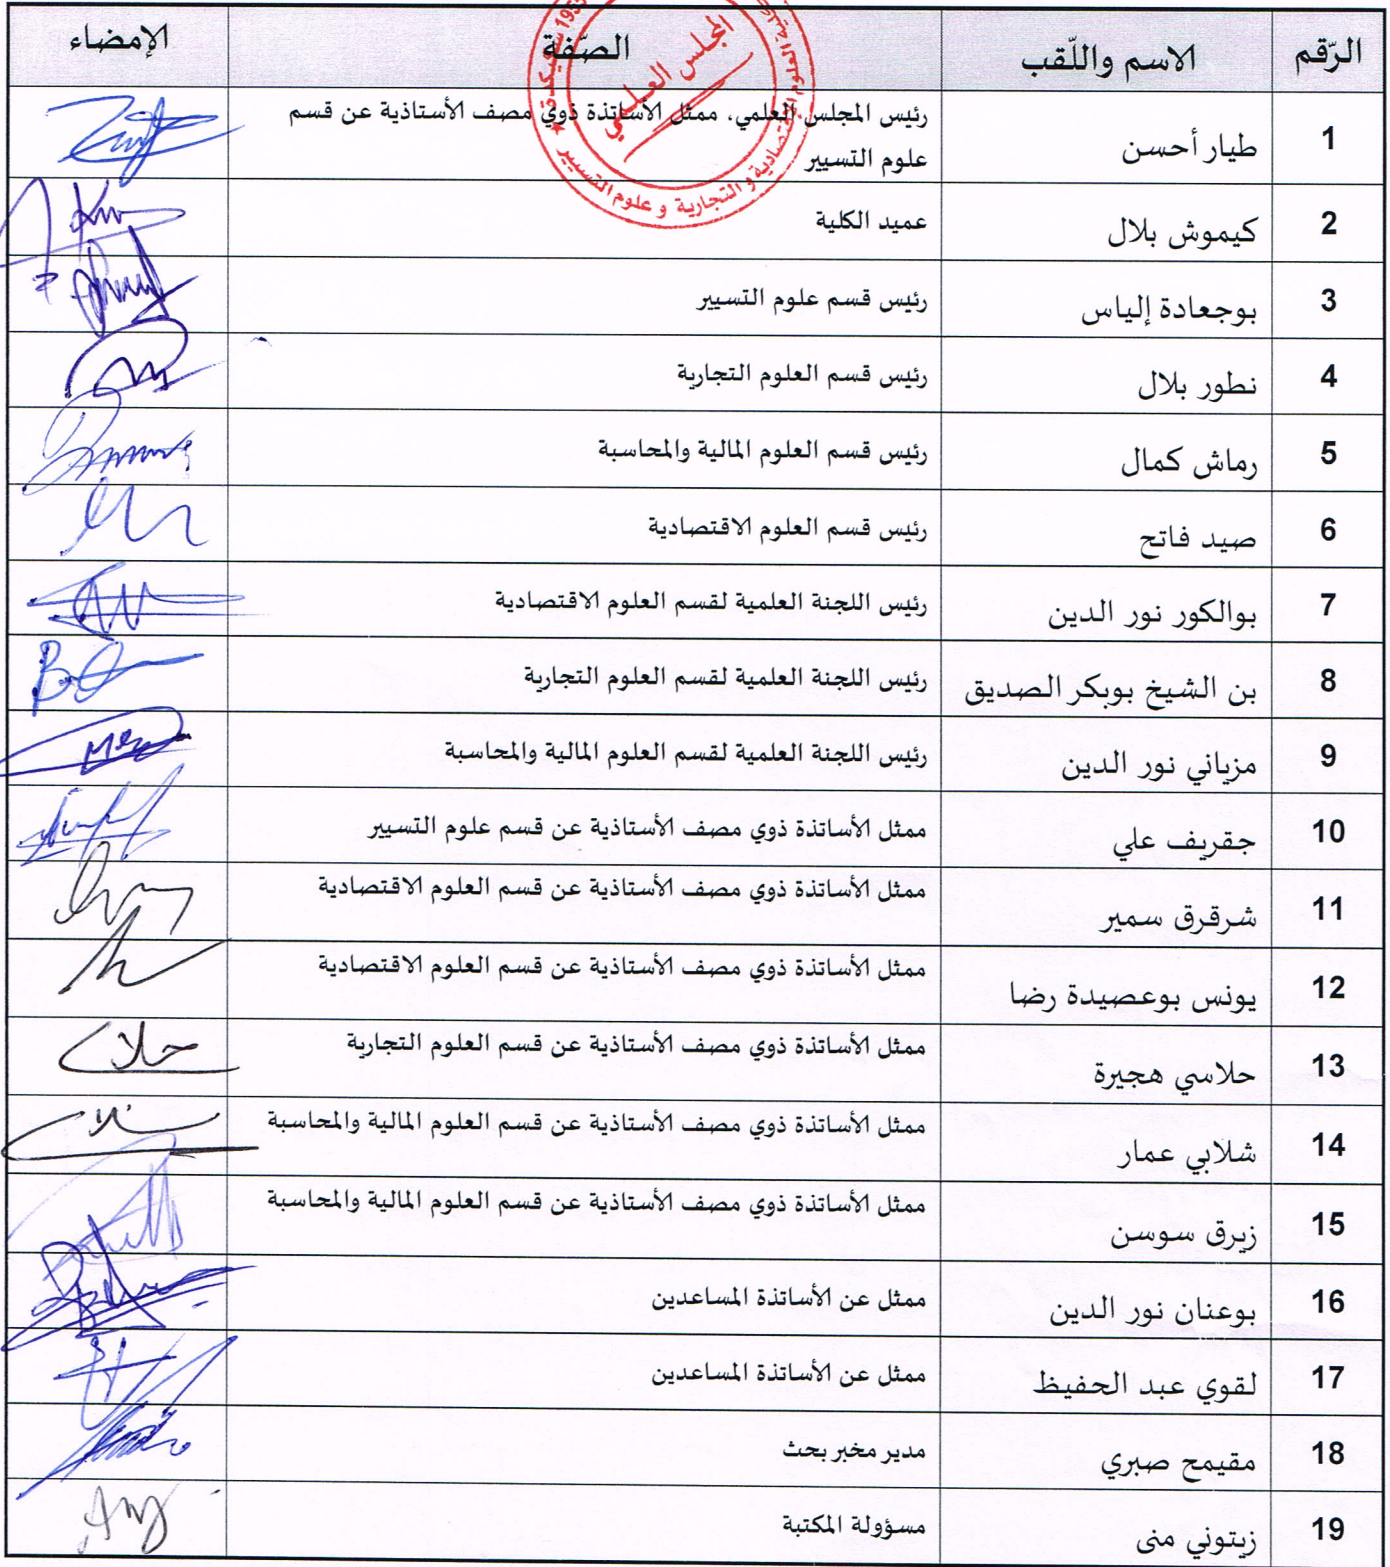 الرّقم الاسم واللّقب الصّفة الإمضاء
1 طيار أحسن رئيس المجلس العلمي، ممثل الأساتذة ذوي مصف الأستاذية عن قسم
علوم التسيير
2 كيموش بلال عميد الكلية
3 بوجعادة إلياس رئيس قسم علوم التسيير
4 نطور بلال رئيس قسم العلوم التجارية
5 رماش كمال رئيس قسم العلوم المالية والمحاسبة
6 صيد فاتح رئيس قسم العلوم الاقتصادية
7 بوالكور نور الدين رئيس اللجنة العلمية لقسم العلوم الاقتصادية
8 بن الشيخ بوبكر الصديق رئيس اللجنة العلمية لقسم العلوم التجارية
9 مزياني نور الدين رئيس اللجنة العلمية لقسم العلوم المالية والمحاسبة
10 جقريف علي ممثل الأساتذة ذوي مصف الأستاذية عن قسم علوم التسيير
11 شرقرق سمير ممثل الأساتذة ذوي مصف الأستاذية عن قسم العلوم الاقتصادية
12 يونس بوعصيدة رضا ممثل الأساتذة ذوي مصف الأستاذية عن قسم العلوم الاقتصادية
13 حلاسي هجيرة ممثل الأساتذة ذوي مصف الأستاذية عن قسم العلوم التجارية
14 شلابي عمار ممثل الأساتذة ذوي مصف الأستاذية عن قسم العلوم المالية والمحاسبة
15 زيرق سوسن ممثل الأساتذة ذوي مصف الأستاذية عن قسم العلوم المالية والمحاسبة
16 بوعنان نور الدين ممثل عن الأساتذة المساعدين
17 لقوي عبد الحفيظ ممثل عن الأساتذة المساعدين
18 مقيمح صبري مدير مخبر بحث
19 زيتوني منى مسؤولة المكتبة
المجلس العلمي
العلوم الإقتصادية و التجارية و علوم التسيير
سكيكدة